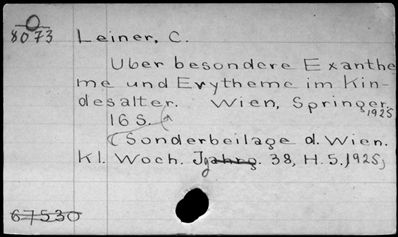 O
8073 Leiner, C.
Über besondere Exanthe
me und Erytheme im Kin-
desalter. Wien, Springer,
1925
16 S.
(Sonderbeilage d. Wien.
Kl. Woch. Jgahrg. 38, H. 5, 1925)
67530